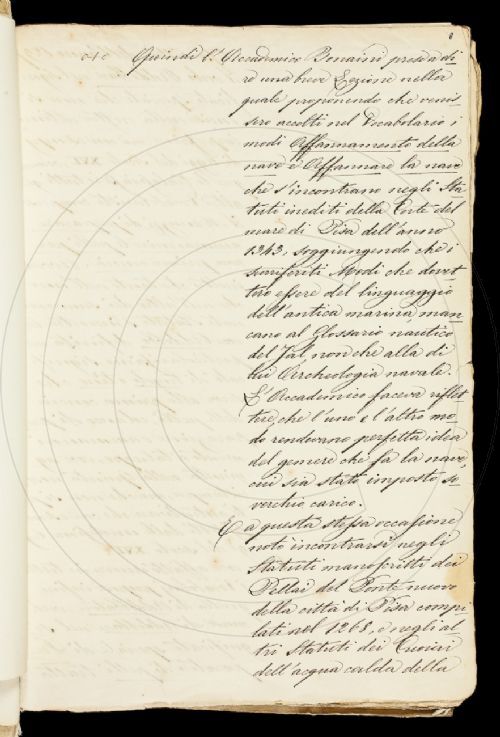 8
Quindi l'Accademico Bonaini prese a di-
re una breve Lezione nella
quale proponendo che venis-
sero accolti nel Vocabolario i
modi Affannamento della
nave e Affannare la nave
che s'incontrano negli Sta-
tuti inediti della Corte del
mare di Pisa dell'anno
1343, soggiungendo che i
suriferiti Modi che dovet-
tero essere del linguaggio
dell'antica marina, man-
cano al Glossario nautico
del Jal non che alla di
lui Archeologia navale.
L'Accademico faceva riflet-
tere, che l'uno e l'altro mo-
do rendevano perfetta idea
del gemere che fa la nave,
cui sia stato imposto so-
verchio carico.
E a questa stessa occasione
noto incontrarsi negli
Statuti manoscritti dei
Pellai del Ponte nuovo
della città di Pisa compi-
lati nel 1268, e negli al-
tri Statuti dei Cuoiai
dell'acqua calda della